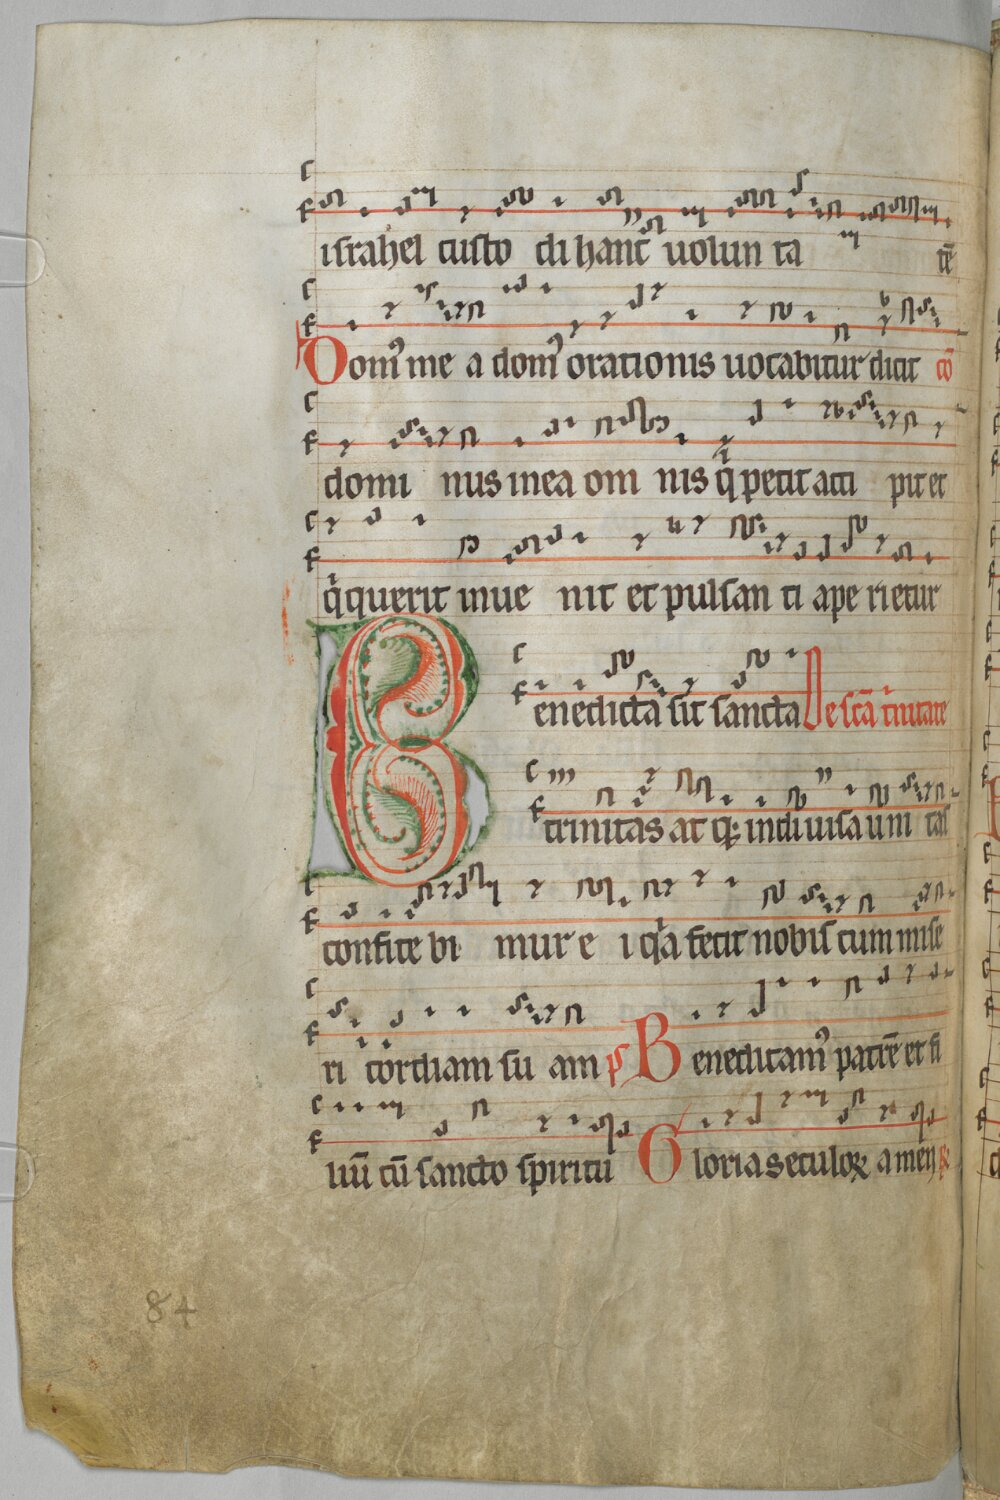 israhel custo di hanc uolun ta tē
Domꝰ me a domꝰ orationis uocabitur dicit cō
domi nus in ea om nis q̇ petit acci pit et
q̇ querit inue nit et pulsan ti ape rietur
Benedicta sit sancta De scā trinitate
trinitas at qꝫ indiuisa uni tas
confite bi mur e i q̇a fecit nobis cum mise
ri cordiam su am ps Benedicamꝰ patrē et fi
liū cū sancto spiritu Gloria seculoꝝ amen
84